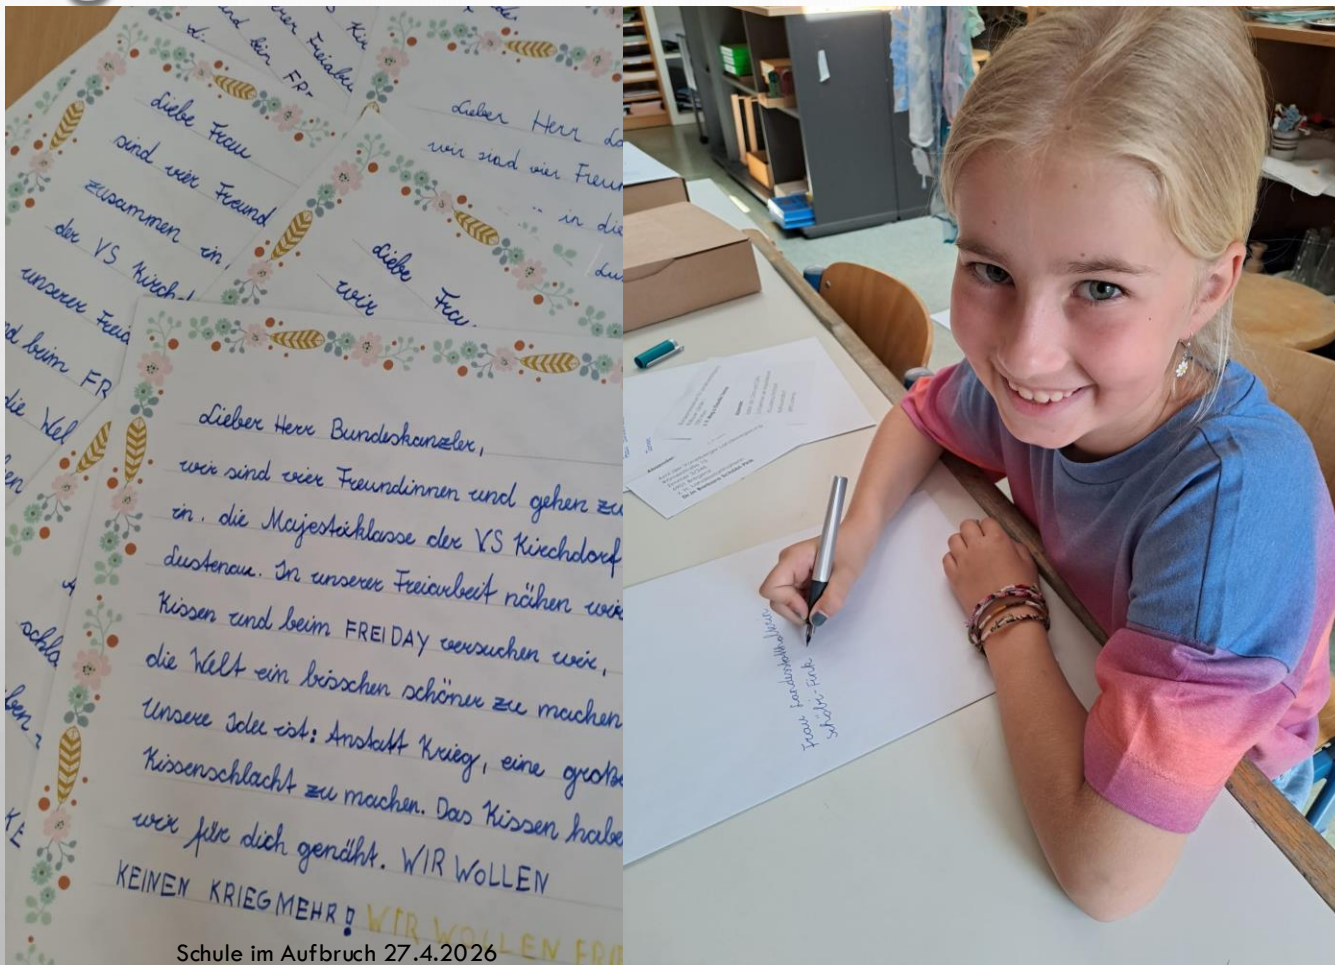 Liebe Frau
sind vier Freund
zusammen in
der VS Kirch
unserer Freia
d beim FR
die Wel
Lieber Herr
wir sind vier Freun
in die
Liebe Frau
wir
Lieber Herr Bundeskanzler,
wir sind vier Freundinnen und gehen zu
in. die Majestixklasse der VS Kirchdorf
Lustenau. In unserer Freiarbeit nähen wir
Kissen und beim FREIDAY versuchen wir,
die Welt ein bisschen schöner zu machen
Unsere Idee ist: Anstatt Krieg, eine große
Kissenschlacht zu machen. Das Kissen habe
wir für dich genäht. WIR WOLLEN
KEINEN KRIEG MEHR! WIR WOLLEN FRIE
Schule im Aufbruch 27.4.2026
Frau Landesstatthalterin
Schöbi-Fink